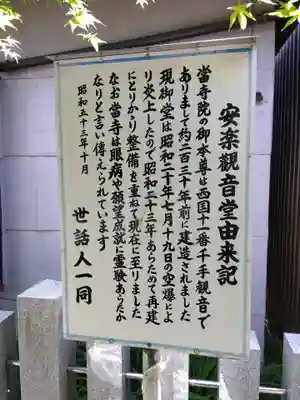 安楽觀音堂由来記
當寺院の御本尊は西国十一番千手觀音で
ありまして約二百三十年前に建造されました
現御堂は昭和二十年七月十九日の空爆によ
り炎上したので昭和二十三年あらためて再建
にとりかゝり整備を重ねて現在に至りました
なお當寺は眼病や願望成就に霊験あらたか
なりと言い傳えられています
昭和五十三年十月
世話人一同